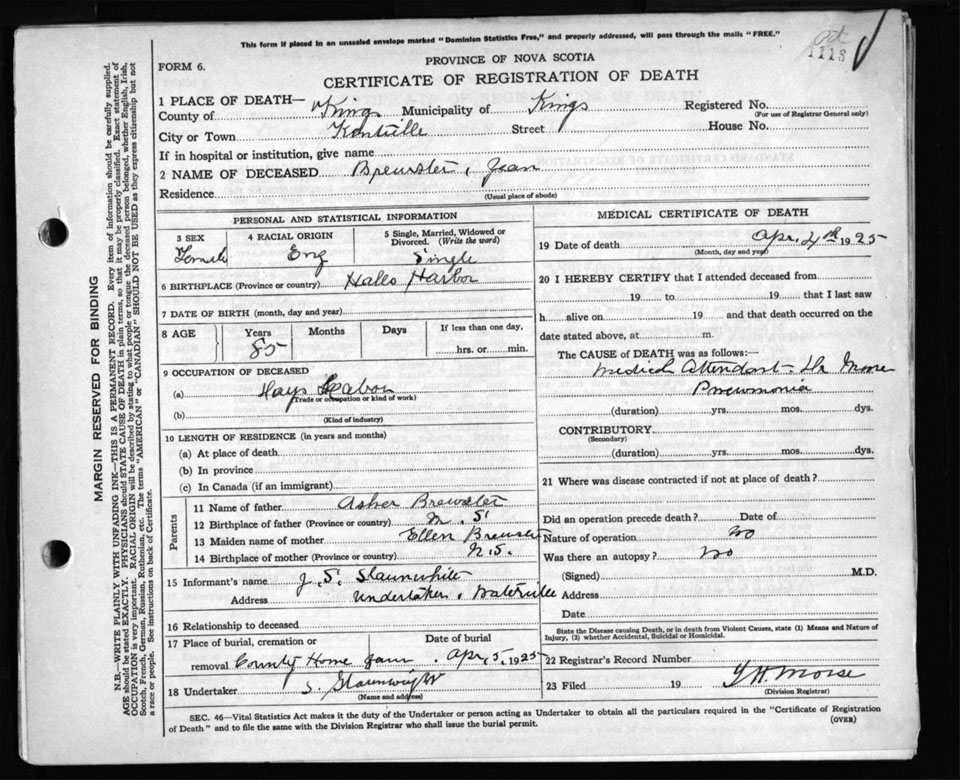 This form if placed in an unsealed envelope marked "Dominion Statistics Free," and properly addressed, will pass through the mails "FREE."
1113
FORM 6.
PROVINCE OF NOVA SCOTIA
CERTIFICATE OF REGISTRATION OF DEATH
1 PLACE OF DEATH—
County of Kings Municipality of Kings Registered No.
(For use of Registrar General only)
City or Town Kentville Street House No.
If in hospital or institution, give name
2 NAME OF DECEASED Brewster, Jean
Residence
(Usual place of abode)
PERSONAL AND STATISTICAL INFORMATION
3 SEX 4 RACIAL ORIGIN 5 Single, Married, Widowed or Divorced. (Write the word)
Female Eng Single
6 BIRTHPLACE (Province or country) Halls Harbor
7 DATE OF BIRTH (month, day and year)
8 AGE Years Months Days If less than one day,
85 hrs. or min.
9 OCCUPATION OF DECEASED
(a) Days Labor
(Trade or occupation or kind of work)
(b)
(Kind of industry)
10 LENGTH OF RESIDENCE (in years and months)
(a) At place of death
(b) In province
(c) In Canada (if an immigrant)
Parents
11 Name of father Asher Brewster
12 Birthplace of father (Province or country) N.S.
13 Maiden name of mother Ellen Brewster
14 Birthplace of mother (Province or country) N.S.
15 Informant's name J. S. Staunwhite
Address Undertaker, Waterville
16 Relationship to deceased
17 Place of burial, cremation or Date of burial
removal County Home Apr, 5, 1925
18 Undertaker S.
(Name and address)
MEDICAL CERTIFICATE OF DEATH
19 Date of death Apr. 4th 1925
(Month, day and year)
20 I HEREBY CERTIFY that I attended deceased from
19 to 19 that I last saw
h alive on 19 and that death occurred on the
date stated above, at m.
The CAUSE OF DEATH was as follows:
Medical Attendant - Dr Moore
Pneumonia
(duration) yrs. mos. dys.
CONTRIBUTORY
(Secondary)
(duration) yrs. mos. dys.
21 Where was disease contracted if not at place of death?
Did an operation precede death? Date of
Nature of operation no
Was there an autopsy? no
(Signed) M.D.
Address
Date
State the Disease causing Death, or in death from Violent Causes, state (1) Means and Nature of
Injury, (2) whether Accidental, Suicidal or Homicidal.
22 Registrar's Record Number
23 Filed 19 Morse
(Division Registrar)
SEC. 46—Vital Statistics Act makes it the duty of the Undertaker or person acting as Undertaker to obtain all the particulars required in the "Certificate of Registration
of Death" and to file the same with the Division Registrar who shall issue the burial permit.
(OVER)
MARGIN RESERVED FOR BINDING
N.B.—WRITE PLAINLY WITH UNFADING INK—THIS IS A PERMANENT RECORD. Every item of information should be carefully supplied.
AGE should be stated EXACTLY. PHYSICIANS should STATE CAUSE OF DEATH in plain terms, so that it may be properly classified. Exact statement of
OCCUPATION is very important. RACIAL ORIGIN will be described by stating to what people or tongue the deceased person belonged, whether English, Irish,
Scotch, French, German, Russian, Ruthenian, etc. The terms "AMERICAN" or "CANADIAN" SHOULD NOT BE USED as they express citizenship but not
a race or people. See instructions on back of Certificate.